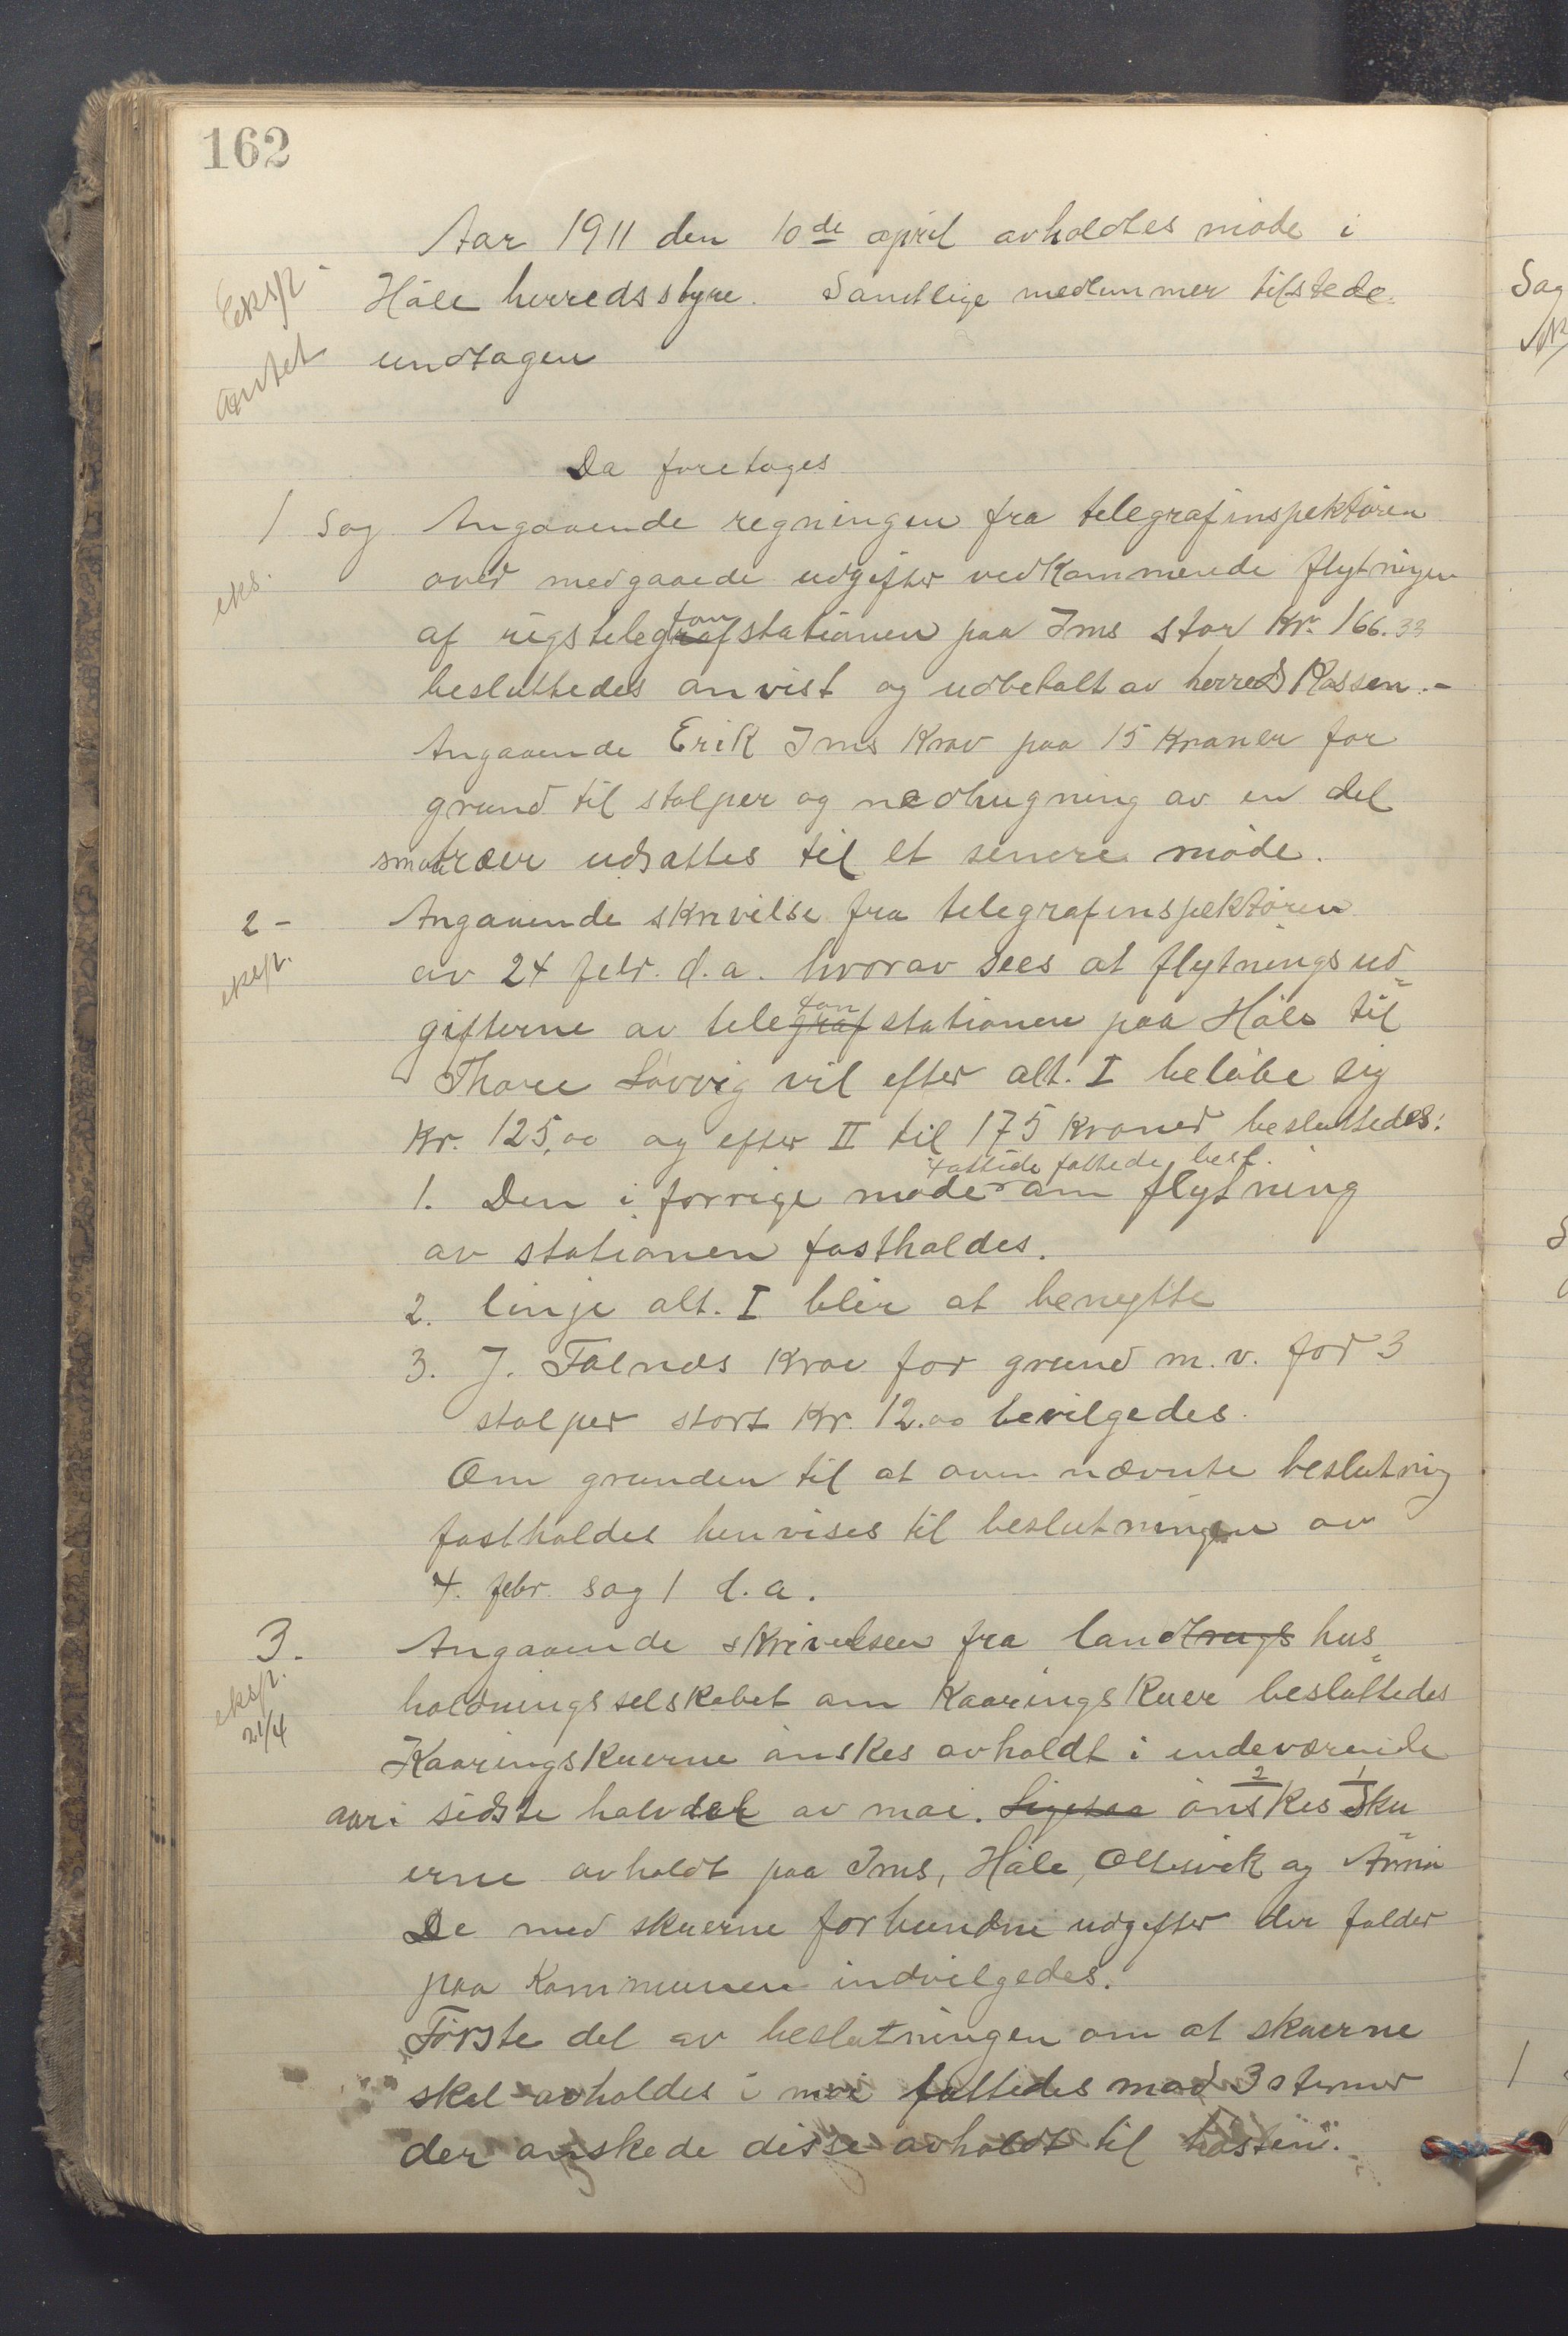 162
Aar 1911 den 10de april avholdtes møde i
Eksp.
Høle herredsstyre. Samtlige medlemmer tilstede
undtagen
Da foretoges
1 Sag Angaaende regningen fra telegrafinspektøren
eks.
over medgaaede udgifter vedkommende flytningen
fon
af rigstelegrafstationen paa Ims stor kr. 166.33
besluttedes anvist og udbetalt av herredskassen.-
Angaaende Erik Ims krav paa 15 kroner for
grund til stolper og nedhugning av en del
smaatræer udsattes til et senere møde.
2 - Angaaende skrivelse fra telegrafinspektøren
eksp.
av 24 febr. d.a. hvorav sees at flytningsud=
fon
gifterne av telegrafstationen paa Høle til
Thore Løvvig vil efter alt. I beløbe sig
Kr. 125,00 og efter II til 175 kroner besluttedes:
fattede besl.
1. Den i forrige møde om flytning
av stationen fastholdes.
2. linje alt. I blir at benytte
3. J. Folnæs krav for grund m.v. for 3
stolper stort kr. 12.00 bevilgedes.
Om grunden til at oven nævnte beslutning
fastholdes henvises til beslutningen av
4. febr. sag 1 d.a.
3. Angaaende skrivelsen fra landbrugs hus=
eksp.
21/4
holdningsselskabet om kaaringskuer besluttedes
Kaaringskuerne ønskes avholdt i indeværende
aar i sidste halvdel av mai. Ligesaa ønskes 2 Sku 1
erne avholdt paa Ims, Høle, Oltesvik og
De med skuerne forbundne udgifter der falder
paa kommunen indvilgedes.
Første del av beslutningen om at skuerne
skal avholdes i mai fattedes mod 3 stemmer
der ønskede disse avholdt til høsten.
Sag
1